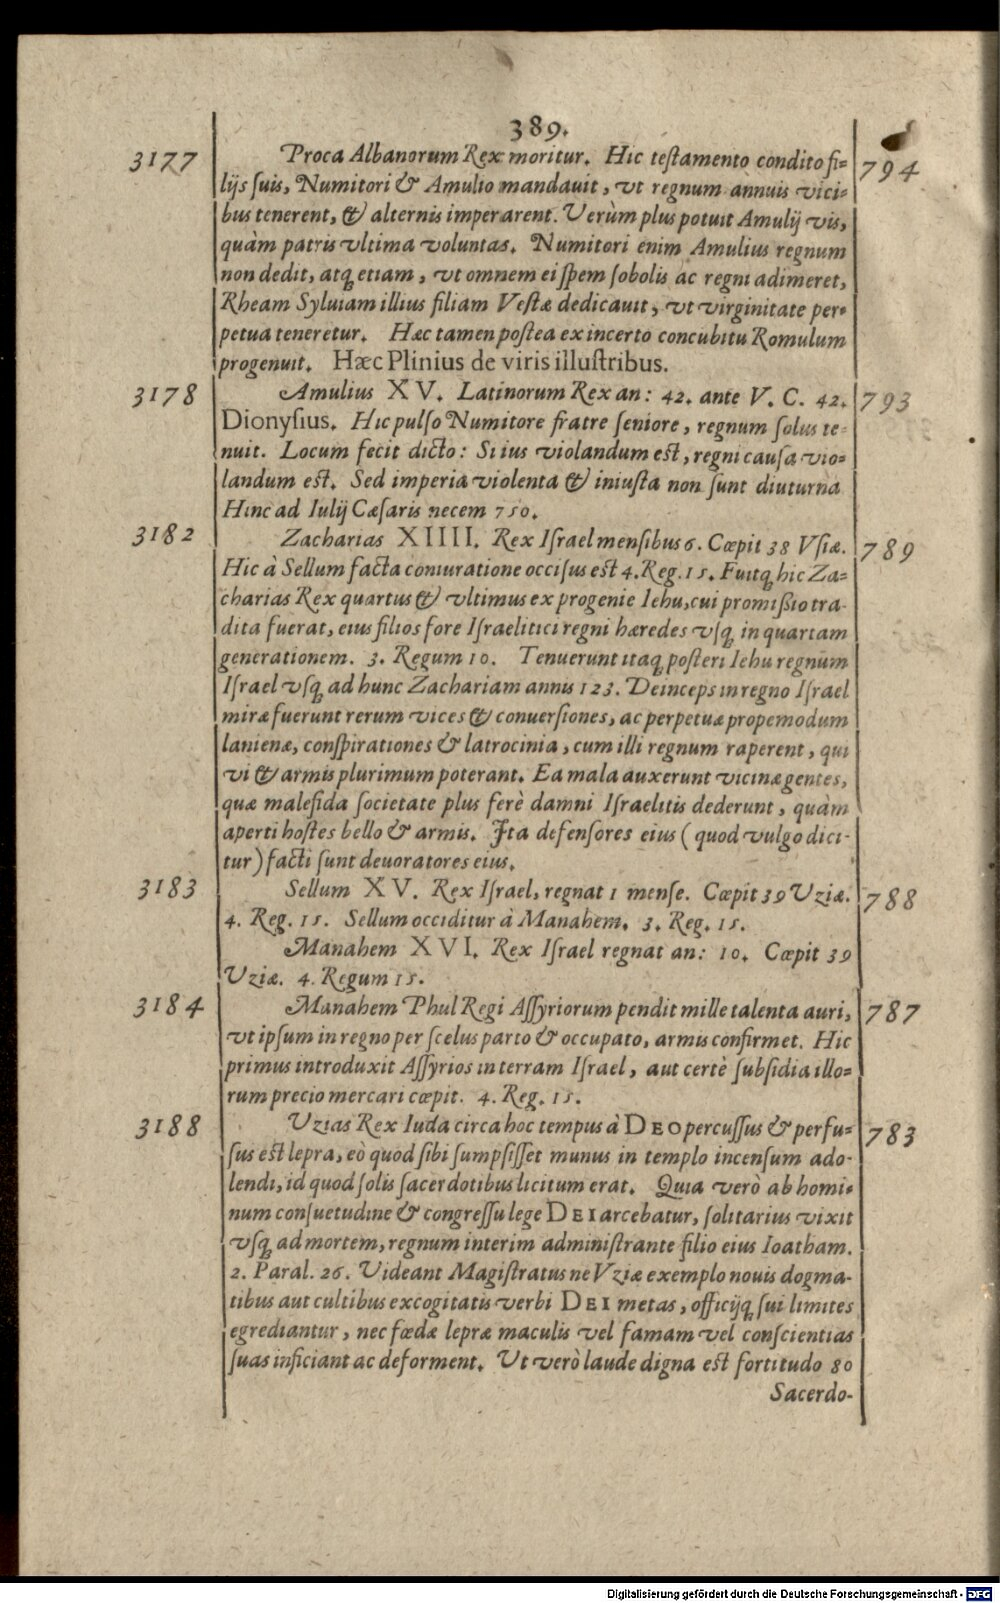 389.
3177 Proca Albanorum Rex moritur. Hic teſtamento condito fi= 794
lijs ſuis, Numitori & Amulio mandauit, vt regnum annuis vici=
bus tenerent, & alternis imperarent. Verùm plus potuit Amulij vis,
quàm patris vltima voluntas. Numitori enim Amulius regnum
non dedit, atq; etiam, vt omnem ei ſpem ſobolis ac regni adimeret,
Rheam Syluiam illius filiam Veſtæ dedicauit, vt virginitate per=
petua teneretur. Hæc tamen poſtea ex incerto concubitu Romulum
progenuit. Hæc Plinius de viris illuſtribus.
3178 Amulius XV. Latinorum Rex an: 42. ante V. C. 42. 793
Dionyſius. Hic pulſo Numitore fratre ſeniore, regnum ſolus te=
nuit. Locum fecit dicto: Si ius violandum eſt, regni cauſa vio=
landum eſt. Sed imperia violenta & iniuſta non ſunt diuturna
Hinc ad Iulij Cæſaris necem 750.
3182 Zacharias XIIII. Rex Iſrael menſibus 6. Cœpit 38 Vſiæ. 789
Hic à Sellum facta coniuratione occiſus eſt 4. Reg. 15. Fuitq; hic Za=
charias Rex quartus & vltimus ex progenie Iehu, cui promiſsio tra-
dita fuerat, eius filios fore Iſraelitici regni hæredes vſq; in quartam
generationem. 3. Regum 10. Tenuerunt itaq; poſteri Iehu regnum
Iſrael vſq; ad hunc Zachariam annis 123. Deinceps in regno Iſrael
miræ fuerunt rerum vices & conuerſiones, ac perpetuæ propemodum
lanienæ, conſpirationes & latrocinia, cum illi regnum raperent, qui
vi & armis plurimum poterant. Ea mala auxerunt vicinæ gentes,
quæ malefida ſocietate plus ferè damni Iſraelitis dederunt, quàm
aperti hoſtes bello & armis. Ita defenſores eius (quod vulgo dici-
tur) facti ſunt deuoratores eius.
3183 Sellum XV. Rex Iſrael, regnat 1 menſe. Cœpit 39 Uziæ. 788
4. Reg. 15. Sellum occiditur à Manahem. 3. Reg. 15.
Manahem XVI. Rex Iſrael regnat an: 10. Cœpit 39
Uziæ. 4. Regum 15.
3184 Manahem Phul Regi Aſſyriorum pendit mille talenta auri, 787
vt ipſum in regno per ſcelus parto & occupato, armis confirmet. Hic
primus introduxit Aſſyrios in terram Iſrael, aut certè ſubſidia illo=
rum precio mercari cœpit. 4. Reg. 15.
3188 Uzias Rex Iuda circa hoc tempus à DEO percuſſus & perfu= 783
ſus eſt lepra, eò quod ſibi ſumpſiſſet munus in templo incenſum ado-
lendi, id quod ſolis ſacerdotibus licitum erat. Quia verò ab homi=
num conſuetudine & congreſſu lege DEI arcebatur, ſolitarius vixit
vſq; ad mortem, regnum interim adminiſtrante filio eius Ioatham.
2. Paral. 26. Uideant Magiſtratus ne Vziæ exemplo nouis dogma-
tibus aut cultibus excogitatis verbi DEI metas, officijq; ſui limites
egrediantur, nec fœdæ lepræ maculis vel famam vel conſcientias
ſuas inficiant ac deforment. Ut verò laude digna eſt fortitudo 80
Sacerdo-
Digitalisierung gefördert durch die Deutsche Forschungsgemeinschaft - DFG